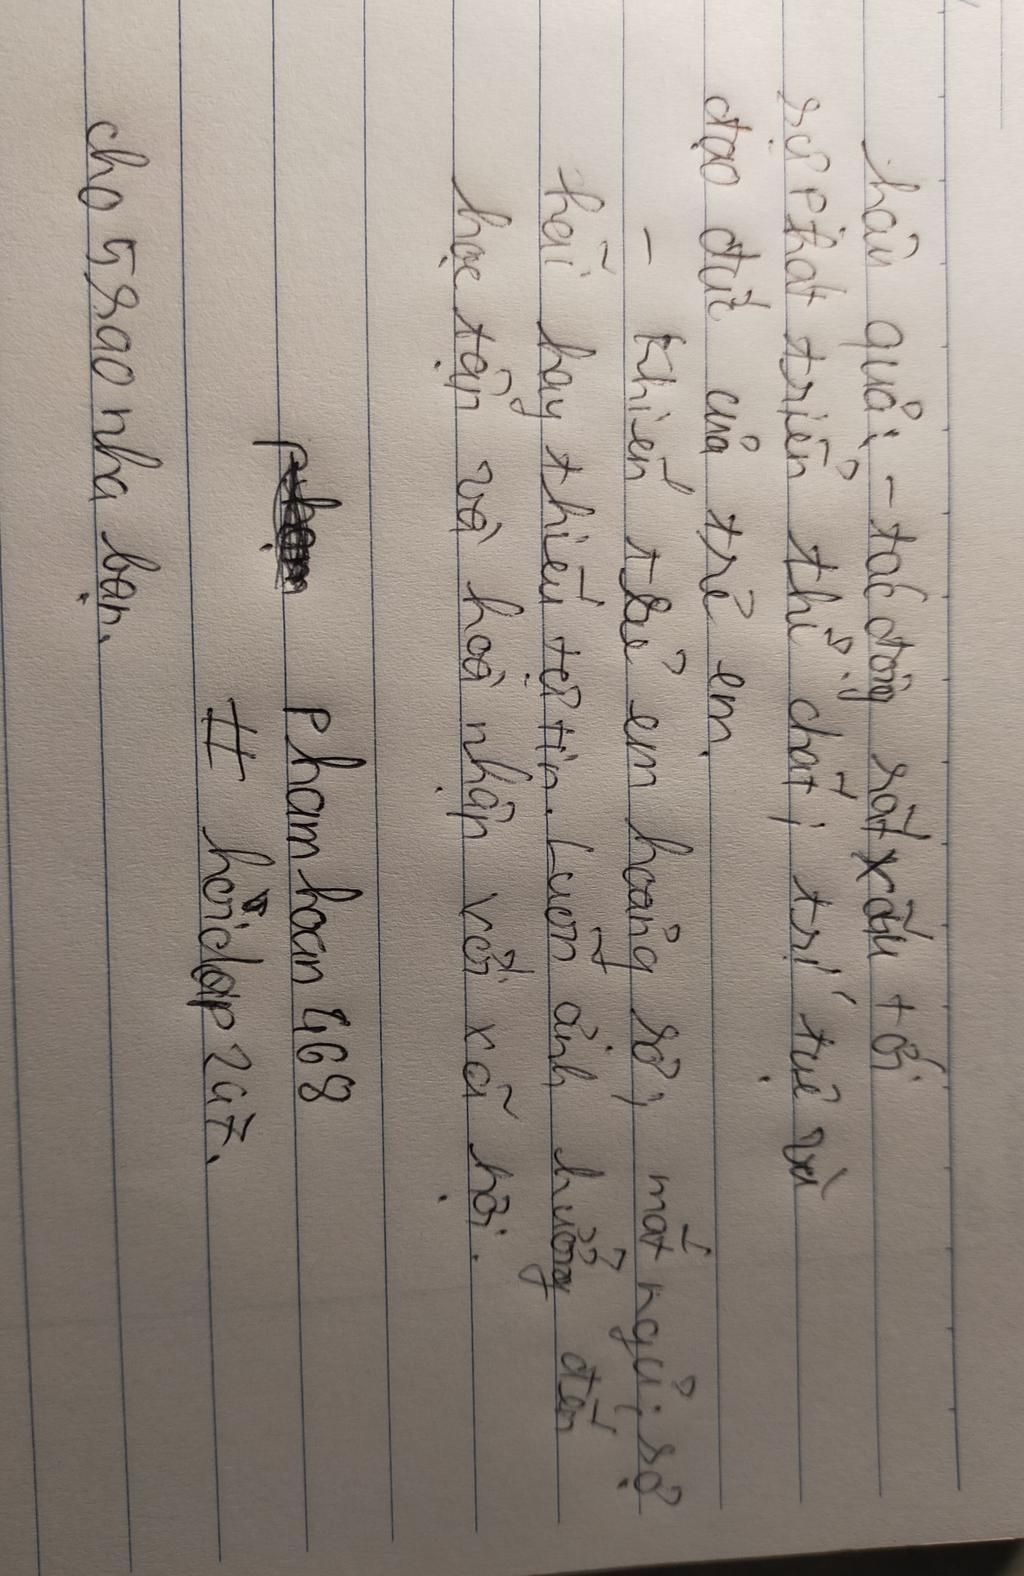 hậu quả: - tác động rất xấu tới
sự phát triển thể chất, trí tuệ và
đạo đức của trẻ em.
- Khiến trẻ em hoảng sợ, mất ngủ, sợ
hãi hay thiếu tự tin. Luôn ảnh hưởng đến
học tập và hoà nhập với xã hội.
Phamhoan468
# hỏidap247.
cho 5 sao nha bạn.